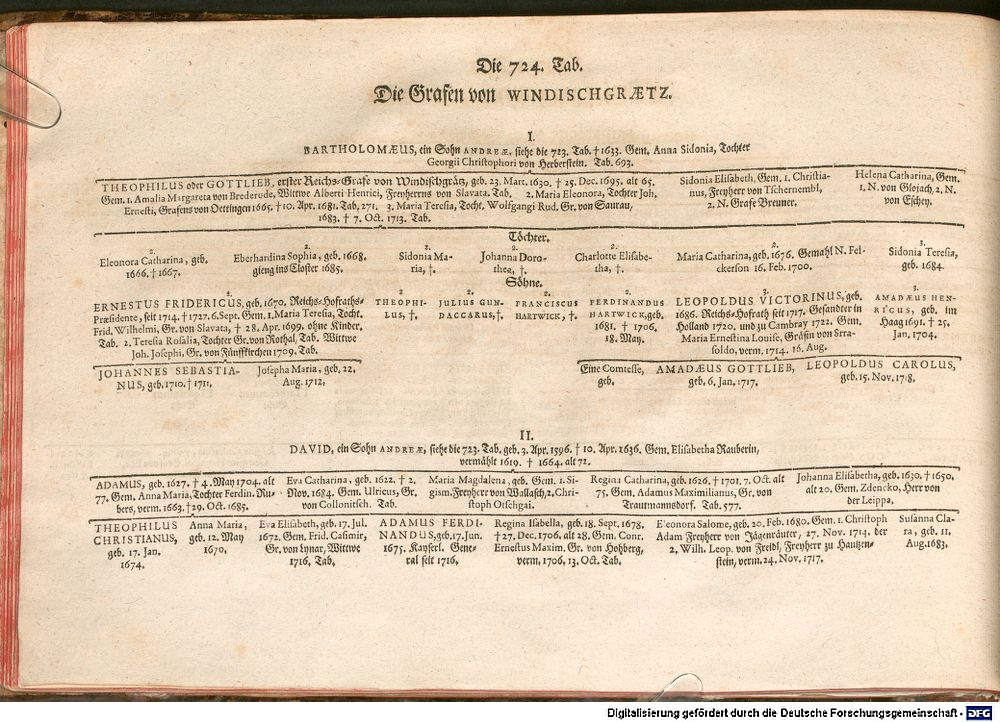 Die 724. Tab.
Die Grafen von WINDISCHGRÆTZ.
I.
BARTHOLOMÆUS, ein Sohn ANDREÆ, siehe die 723. Tab. † 1633. Gem. Anna Sidonia, Tochter
Georgii Christophori von Herberstein. Tab. 693.
THEOPHILUS oder GOTTLIEB, erster Reichs-Grafe von Windischgrätz, geb. 23. Mart. 1630. † 25. Dec. 1695. alt 65.
Gem. 1. Amalia Margareta von Brederode, Wittwe Alberti Henrici, Freyherrns von Slavata. Tab. 2. Maria Eleonora, Tochter Joh.
Ernesti, Grafens von Oettingen 1665. † 10. Apr. 1681. Tab. 271. 3. Maria Teresia, Tocht. Wolfgangi Rud. Gr. von Saurau,
1683. † 7. Oct. 1713. Tab.
Sidonia Elisabeth, Gem. 1. Christia-
nus, Freyherr von Tschernembl,
2. N. Grafe Breuner.
Helena Catharina, Gem.
1. N. von Glojach, 2. N.
von Eschey.
Töchter.
2.
Eleonora Catharina, geb.
1666. † 1667.
2.
Eberhardina Sophia, geb. 1668.
gieng ins Closter 1685.
2.
Sidonia Ma-
ria, †.
2.
Johanna Doro-
thea, †.
2.
Charlotte Elisabe-
tha, †.
2.
Maria Catharina, geb. 1676. Gemahl N. Fel-
ckerson 16. Feb. 1700.
3.
Sidonia Teresia,
geb. 1684.
Söhne.
2.
ERNESTUS FRIDERICUS, geb. 1670. Reichs-Hofraths-
Præsidente, seit 1714. † 1727. 6. Sept. Gem. 1. Maria Teresia, Tocht.
Frid. Wilhelmi, Gr. von Slavata, † 28. Apr. 1699. ohne Kinder.
Tab. 2. Teresia Rosalia, Tochter Gr. von Rothal, Tab. Wittwe
Joh. Josephi, Gr. von Fünffkirchen 1709. Tab.
2.
THEOPHI-
LUS, †.
2.
JULIUS GUN-
DACCARUS, †.
2.
FRANCISCUS
HARTWICK, †.
2.
FERDINANDUS
HARTWICK, geb.
1681. † 1706.
18. May.
3.
LEOPOLDUS VICTORINUS, geb.
1686. Reichs-Hofrath seit 1717. Gesandter in
Holland 1720. und zu Cambray 1722. Gem.
Maria Ernestina Louise, Gräfin von Stra-
soldo, verm. 1714. 16. Aug.
3.
AMADÆUS HEN-
RICUS, geb. im
Haag 1691. † 25.
Jan. 1704.
JOHANNES SEBASTIA-
NUS, geb. 1710. † 1711.
Josepha Maria, geb. 22.
Aug. 1712.
Eine Comtesse,
geb.
AMADÆUS GOTTLIEB,
geb. 6. Jan. 1717.
LEOPOLDUS CAROLUS,
geb. 15. Nov. 1718.
II.
DAVID, ein Sohn ANDREÆ, siehe die 723. Tab. geb. 3. Apr. 1596. † 10. Apr. 1636. Gem. Elisabetha Rauberin,
vermählt 1619. † 1664. alt 72.
ADAMUS, geb. 1627. † 4. May 1704. alt
77. Gem. Anna Maria, Tochter Ferdin. Ru-
bers, verm. 1663. † 29. Oct. 1685.
Eva Catharina, geb. 1622. † 2.
Nov. 1684. Gem. Ulricus, Gr.
von Collonitsch. Tab.
Maria Magdalena, geb. Gem. 1. Si-
gism. Freyherr von Wallasch, 2. Chri-
stoph Otschgai.
Regina Catharina, geb. 1626. † 1701. 7. Oct. alt
75. Gem. Adamus Maximilianus, Gr. von
Trautmannsdorf. Tab. 577.
Johanna Elisabetha, geb. 1630. † 1650.
alt 20. Gem. Zdencko, Herr von
der Leippa.
THEOPHILUS
CHRISTIANUS,
geb. 17. Jan.
1674.
Anna Maria,
geb. 12. May
1670.
Eva Elisabeth, geb. 17. Jul.
1672. Gem. Frid. Casimir,
Gr. von Lynar, Wittwe
1716. Tab.
ADAMUS FERDI-
NANDUS, geb. 17. Jun.
1675. Kayserl. Gene-
ral seit 1716.
Regina Isabella, geb. 18. Sept. 1678.
† 27. Dec. 1706. alt 28. Gem. Conr.
Ernestus Maxim. Gr. von Hohberg,
verm. 1706. 13. Oct. Tab.
Eleonora Salome, geb. 20. Feb. 1680. Gem. 1. Christoph
Adam Freyherr von Jägenräuter, 27. Nov. 1714. der
2. Wilh. Leop. von Freidl, Freyherr zu Hautzen-
stein, verm. 24. Nov. 1717.
Susanna Cla-
ra, geb. 11.
Aug. 1683.
Digitalisierung gefördert durch die Deutsche Forschungsgemeinschaft - DFG